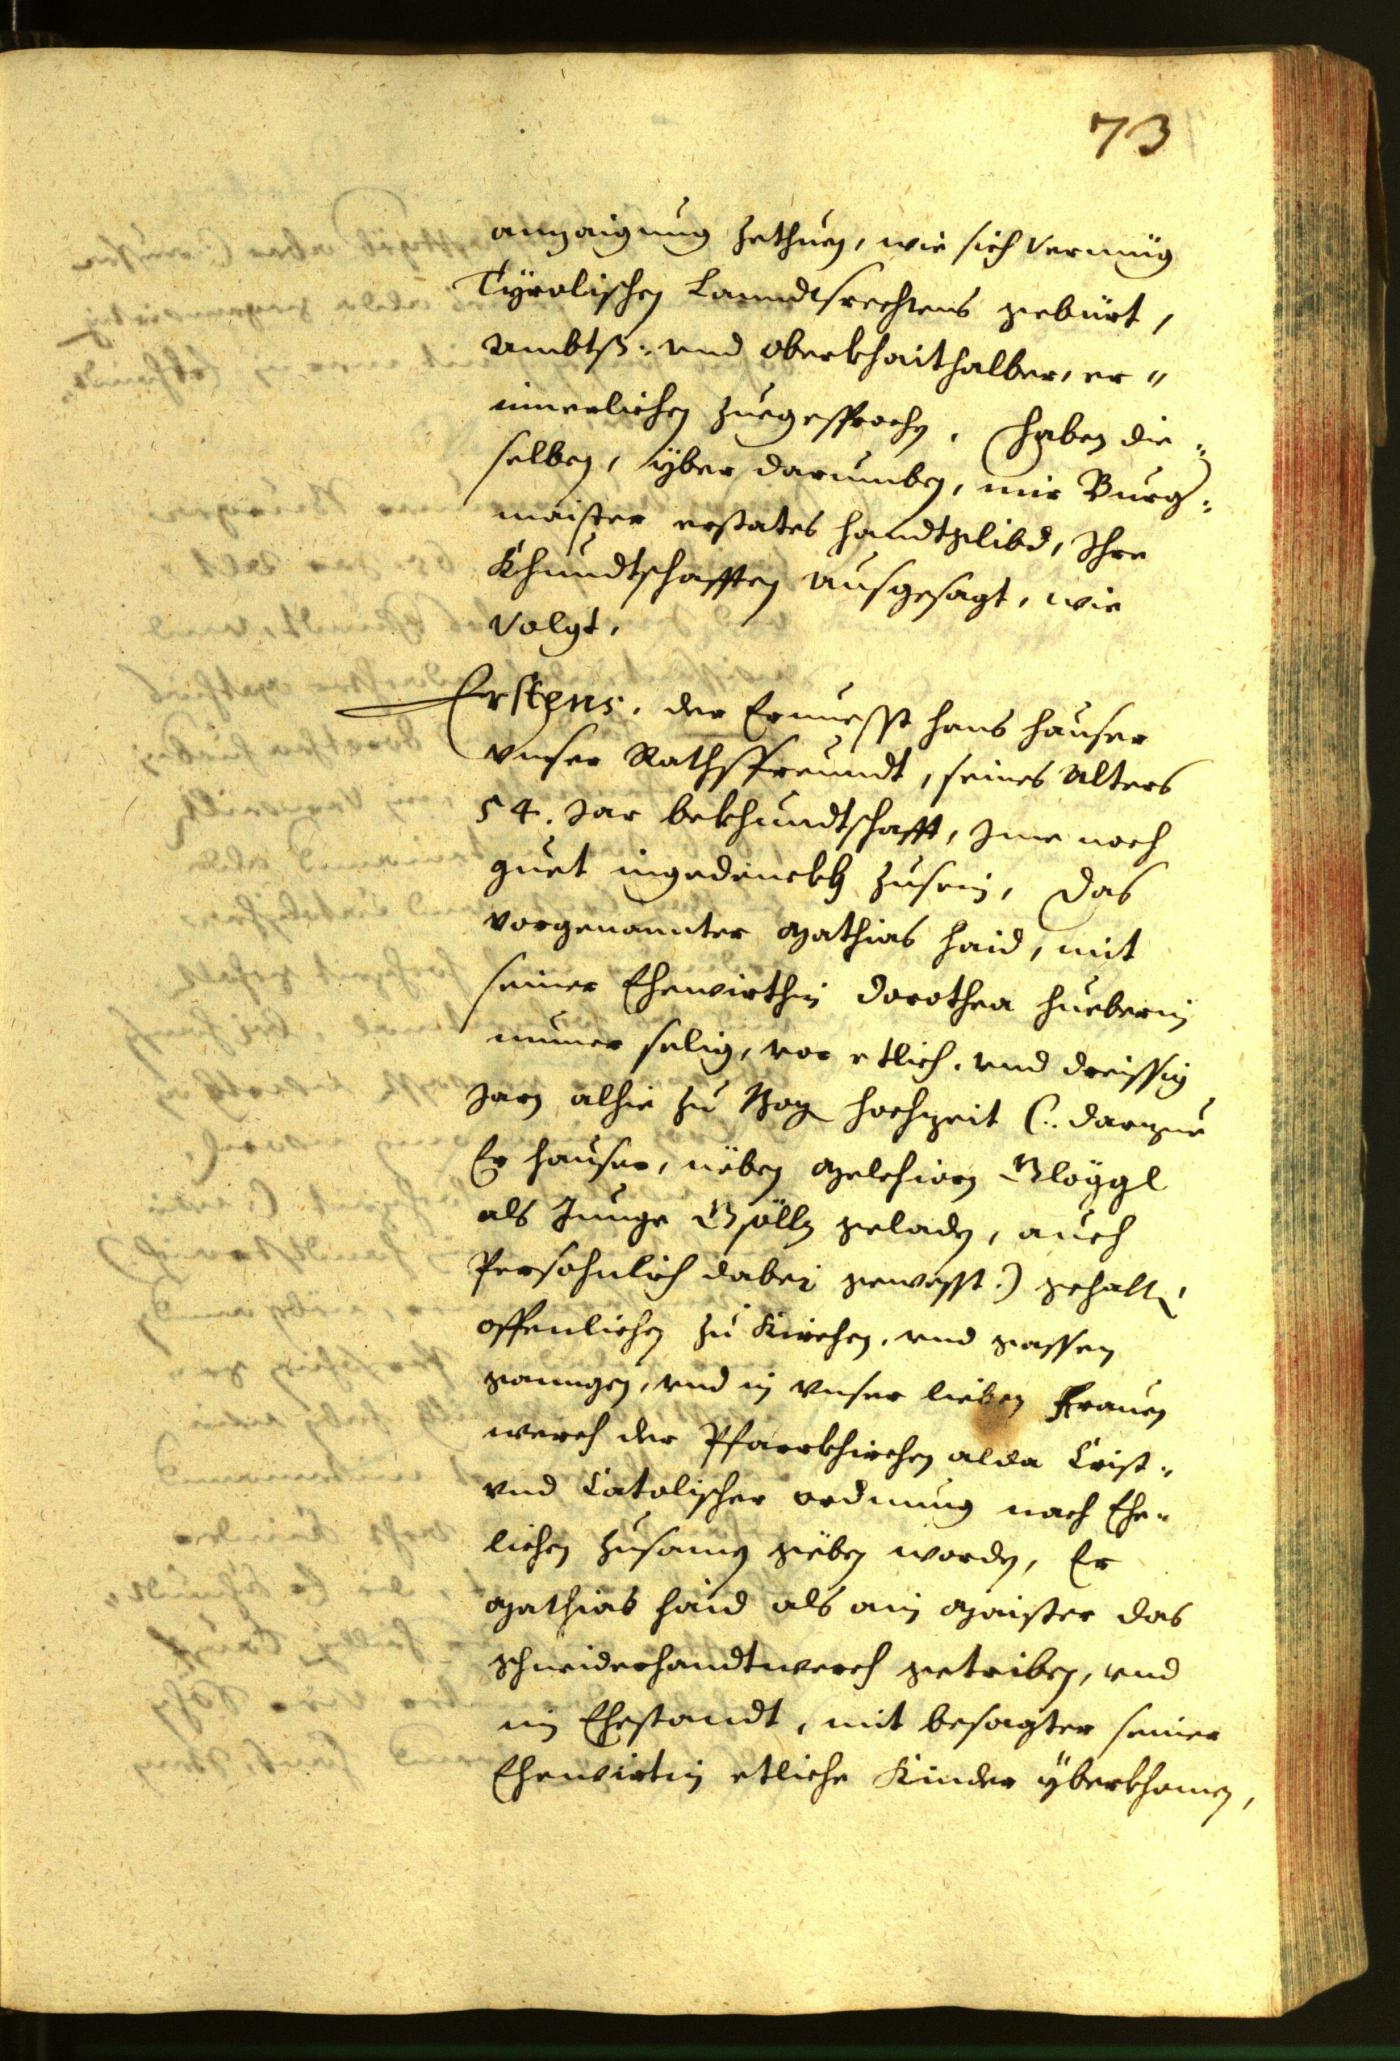 73
anzaigung zethuen, wie sich vermüg
Tÿrolischen Lanndtsrechtens gebürt,
Ambtß: vnd Oberkhaithalber, er"
innerlichen zuegesprochn. Haben die"
selben, ÿber darumben, mir Burg:
maister erstates handtglibd, Ihre
Khundtschafften ausgesagt, wie
volgt.
Erstens. der Ernuesst Hans Hauser
vnser Rathsfreundt, seines Alters
54. Jar bekhundtschafft, Ime noch
guet ingedenckh zusein, Das
vorgenannter Mathias Haid, mit
seiner Ehewirthin Dorothea Hueberin
numer selig, vor etlich. vnd dreissig
Jarn alhie zu Bozen Hochzeit (: darzue
Er Hauser, nëben Melchiorn Plöggl
als Junge Gsölln geladn, auch
Persohnlich dabei gewesst :) gehaltn
offenlichen zu Kirchen, vnd gassen
ganngen, vnd in vnser lieben Frauen
werch der Pfarrkhirchen alda Crist"
vnd Catolischer ordnung nach Ehe"
lichen zusamen gëben worden, Er
Mathias Haid als ain Maister das
Schneiderhandtwerch getriben, vnd
im Ehestandt, mit besagter seiner
Ehewirtin etliche Kinder ÿberkhomen,